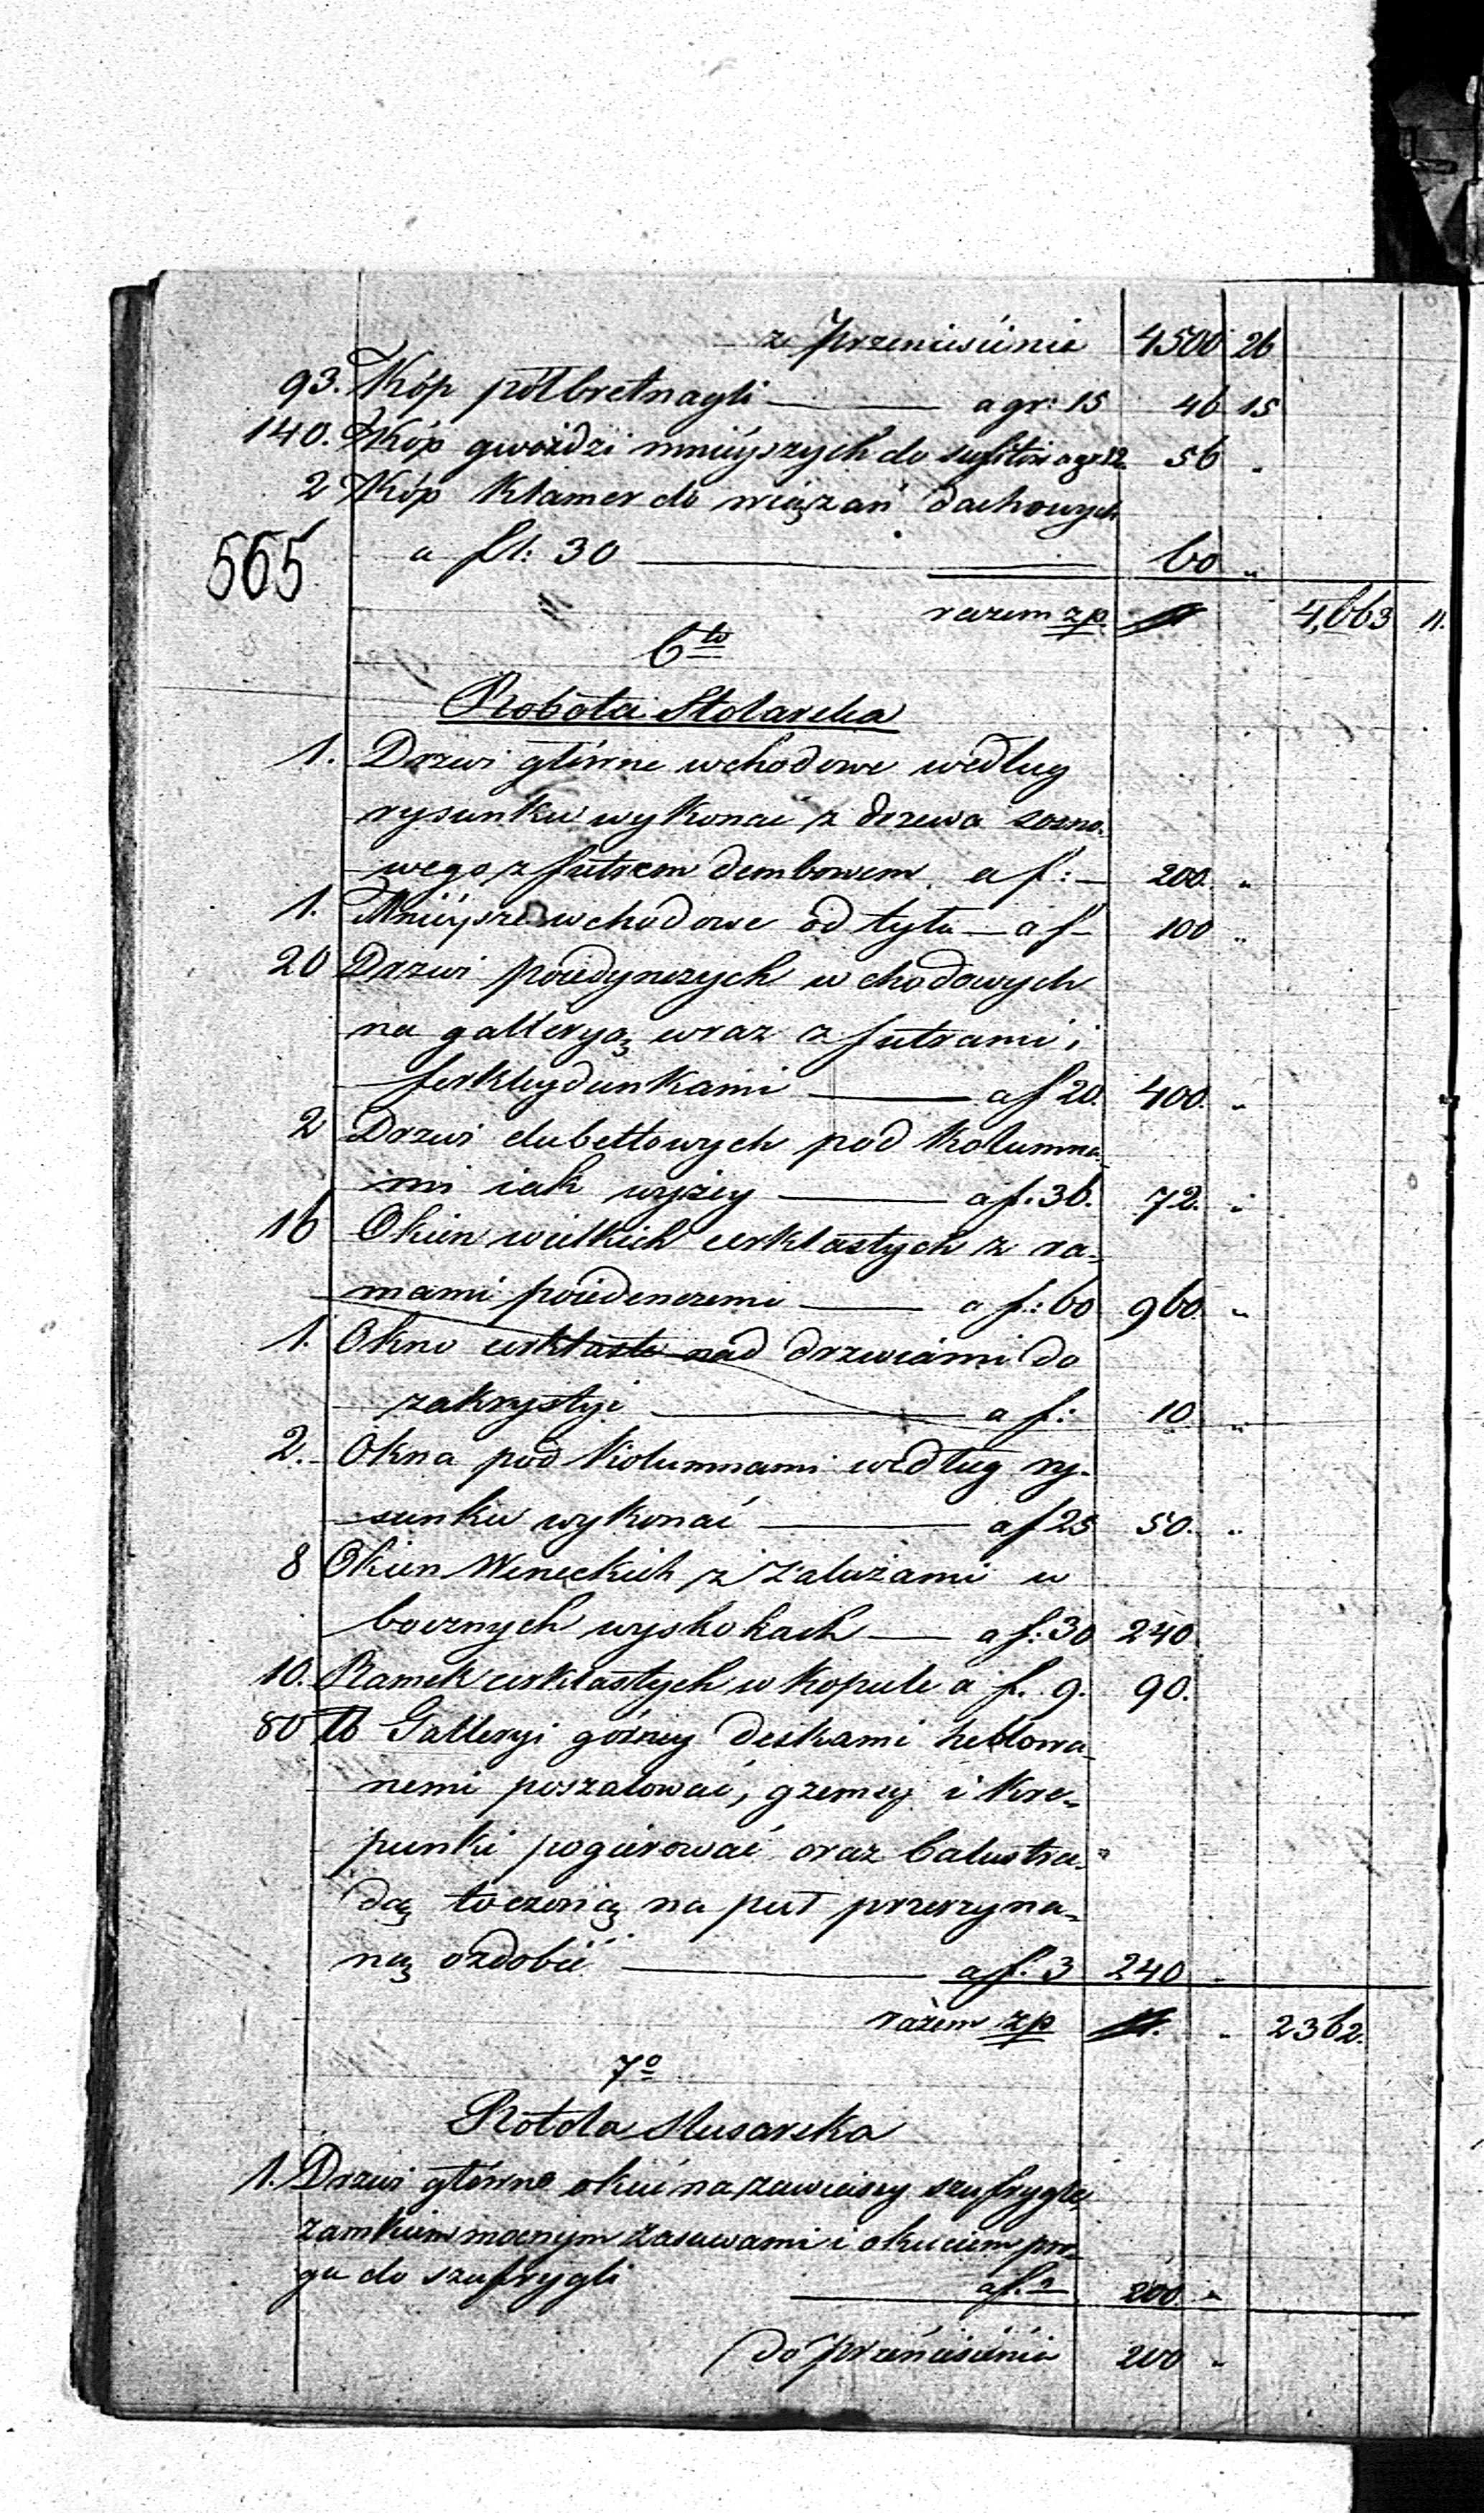 z Przeniesienia 4500 26
93. Kóp półbretnagli — a gr: 15 46 15
140. Kóp gwoździ mnieyszych do sufitów a gr 12. 56 „
2 Kóp Klamer do wiązań dachowych
565
a fl: 30 — 60 „
razem zp. 4,663 11.
6to
Robota Stolarska
1. Drzwi główne wchodowe według
rysunku wykonać z drzewa sosno-
wego z futrem dembowem a f: — 200. „
1. Mnieysze wchodowe od tyłu — a f — 100 „
20 Drzwi poiedynczych wchodowych
na galleryą wraz z futrami i
ferkleydunkami — a f 20. 400. „
2 Drzwi dubeltowych pod Kolumna-
mi iak wyżey — a f. 36. 72. „
16 Okien wielkich cerklastych z ra-
mami poiedenczemi — a f.: 60 960. „
1. Okno cerklaste nad drzwiami do
zakrystyi — a f: 10 „
2. Okna pod Kolumnami według ry-
sunku wykonać — a f 25 50. „
8 Okien Weneckich z Zaluziami w
bocznych wyskokach — a f: 30 240.
10. Ramek cerklastych w Kopule a f. 9. 90.
80 Galleryi górney deskami heblowa-
nemi poszalować, gzemsy i Kre-
punki pogierować oraz balustra-
dą toczoną na puł przerzyna-
ną ozdobić — a f. 3 240 „
razem zp „ 2362.
7o
Robota Slusarska
1. Drzwi główne okuć na zawiasy szufrygle
zamkiem mocnym zasuwami i okuciem pro-
gu do szufrygli a f. — 200. „
do przeniesienia 200 „